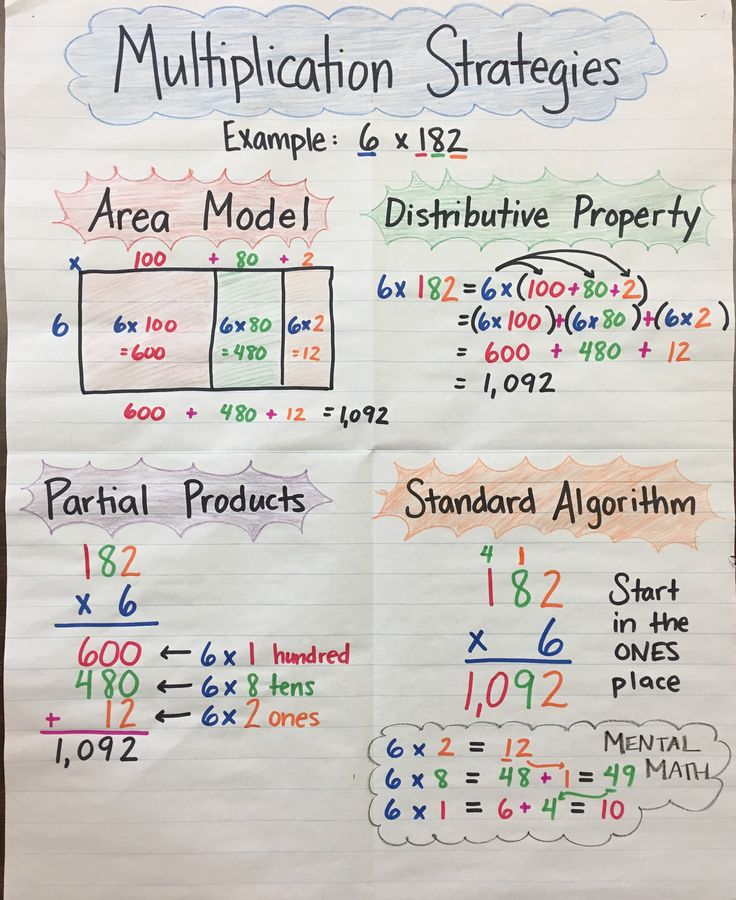 Multiplication Strategies
Example: 6 x 182
Area Model
x 100 + 80 + 2
6 6x100 6x80 6x2
=600 =480 =12
600 + 480 + 12 = 1,092
Distributive Property
6x 182 = 6x(100+80+2)
=(6x100)+(6x80)+(6x2)
= 600 + 480 + 12
= 1,092
Partial Products
182
x 6
600 ← 6x1 hundred
480 ← 6x8 tens
+ 12 ← 6x2 ones
1,092
Standard Algorithm
4 1
182
x 6
1,092
Start
in the
ONES
place
MENTAL
MATH
6 x 2 = 12
6 x 8 = 48 + 1 = 49
6 x 1 = 6 + 4 = 10